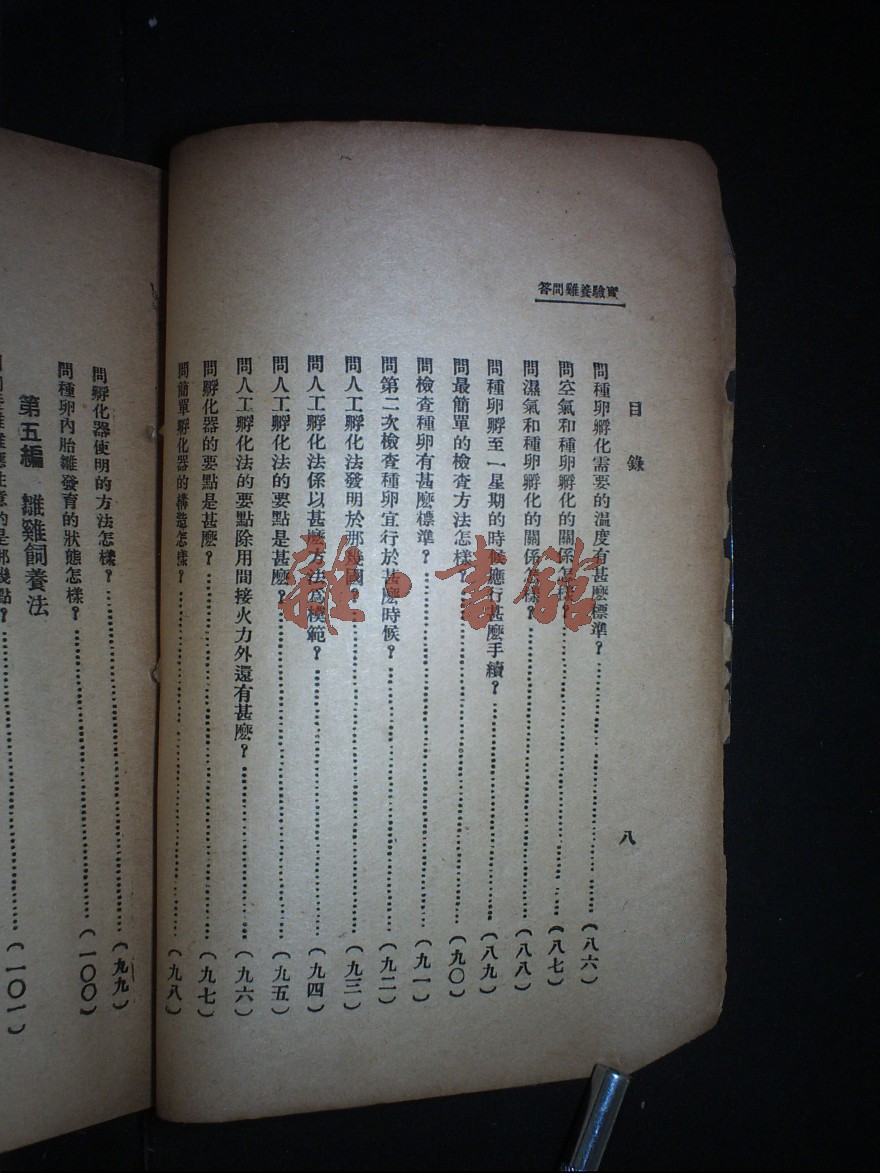 實驗養雞問答
目錄
八
問種卵孵化需要的温度有甚麽標準？……(八六)
問空氣和種卵孵化的關係怎樣？……(八七)
問濕氣和種卵孵化的關係怎樣？……(八八)
問種卵孵至一星期的時候應行甚麽手續？……(八九)
問最簡單的檢查方法怎樣？……(九〇)
問檢查種卵有甚麽標準？……(九一)
問第二次檢查種卵宜行於甚麽時候？……(九二)
問人工孵化法發明於那幾國？……(九三)
問人工孵化法係以甚麽方法爲模範？……(九四)
問人工孵化法的要點是甚麽？……(九五)
問人工孵化法的要點除用間接火力外還有甚麽？……(九六)
問孵化器的要點是甚麽？……(九七)
問簡單孵化器的構造怎樣？……(九八)
問孵化器使明的方法怎樣？……(九九)
問種卵內胎雛發育的狀態怎樣？……(一〇〇)
第五編 雛雞飼養法
意的是那幾點？……(一〇一)
雜·書館